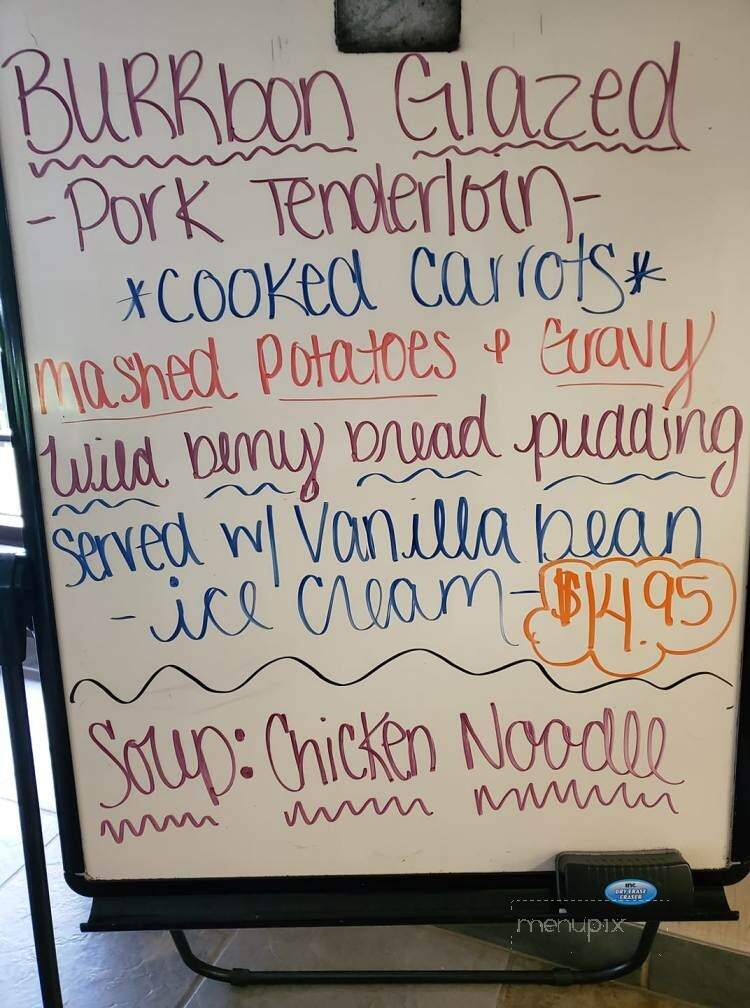 BURRbon Glazed
-Pork Tenderloin-
*cooked carrots*
mashed potatoes & Gravy
Wild berry bread pudding
served w/ Vanilla bean
-ice cream- $14.95
Soup: Chicken Noodle
inc.
DRY ERASE
ERASER
menupix